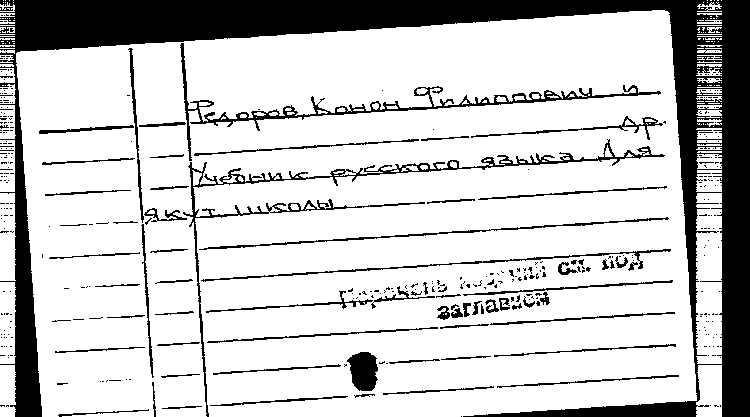 Федоров, Конон Филиппович и
др.
Учебник русского языка. Для
якут. школы.
Перечень изданий см. под
заглавием